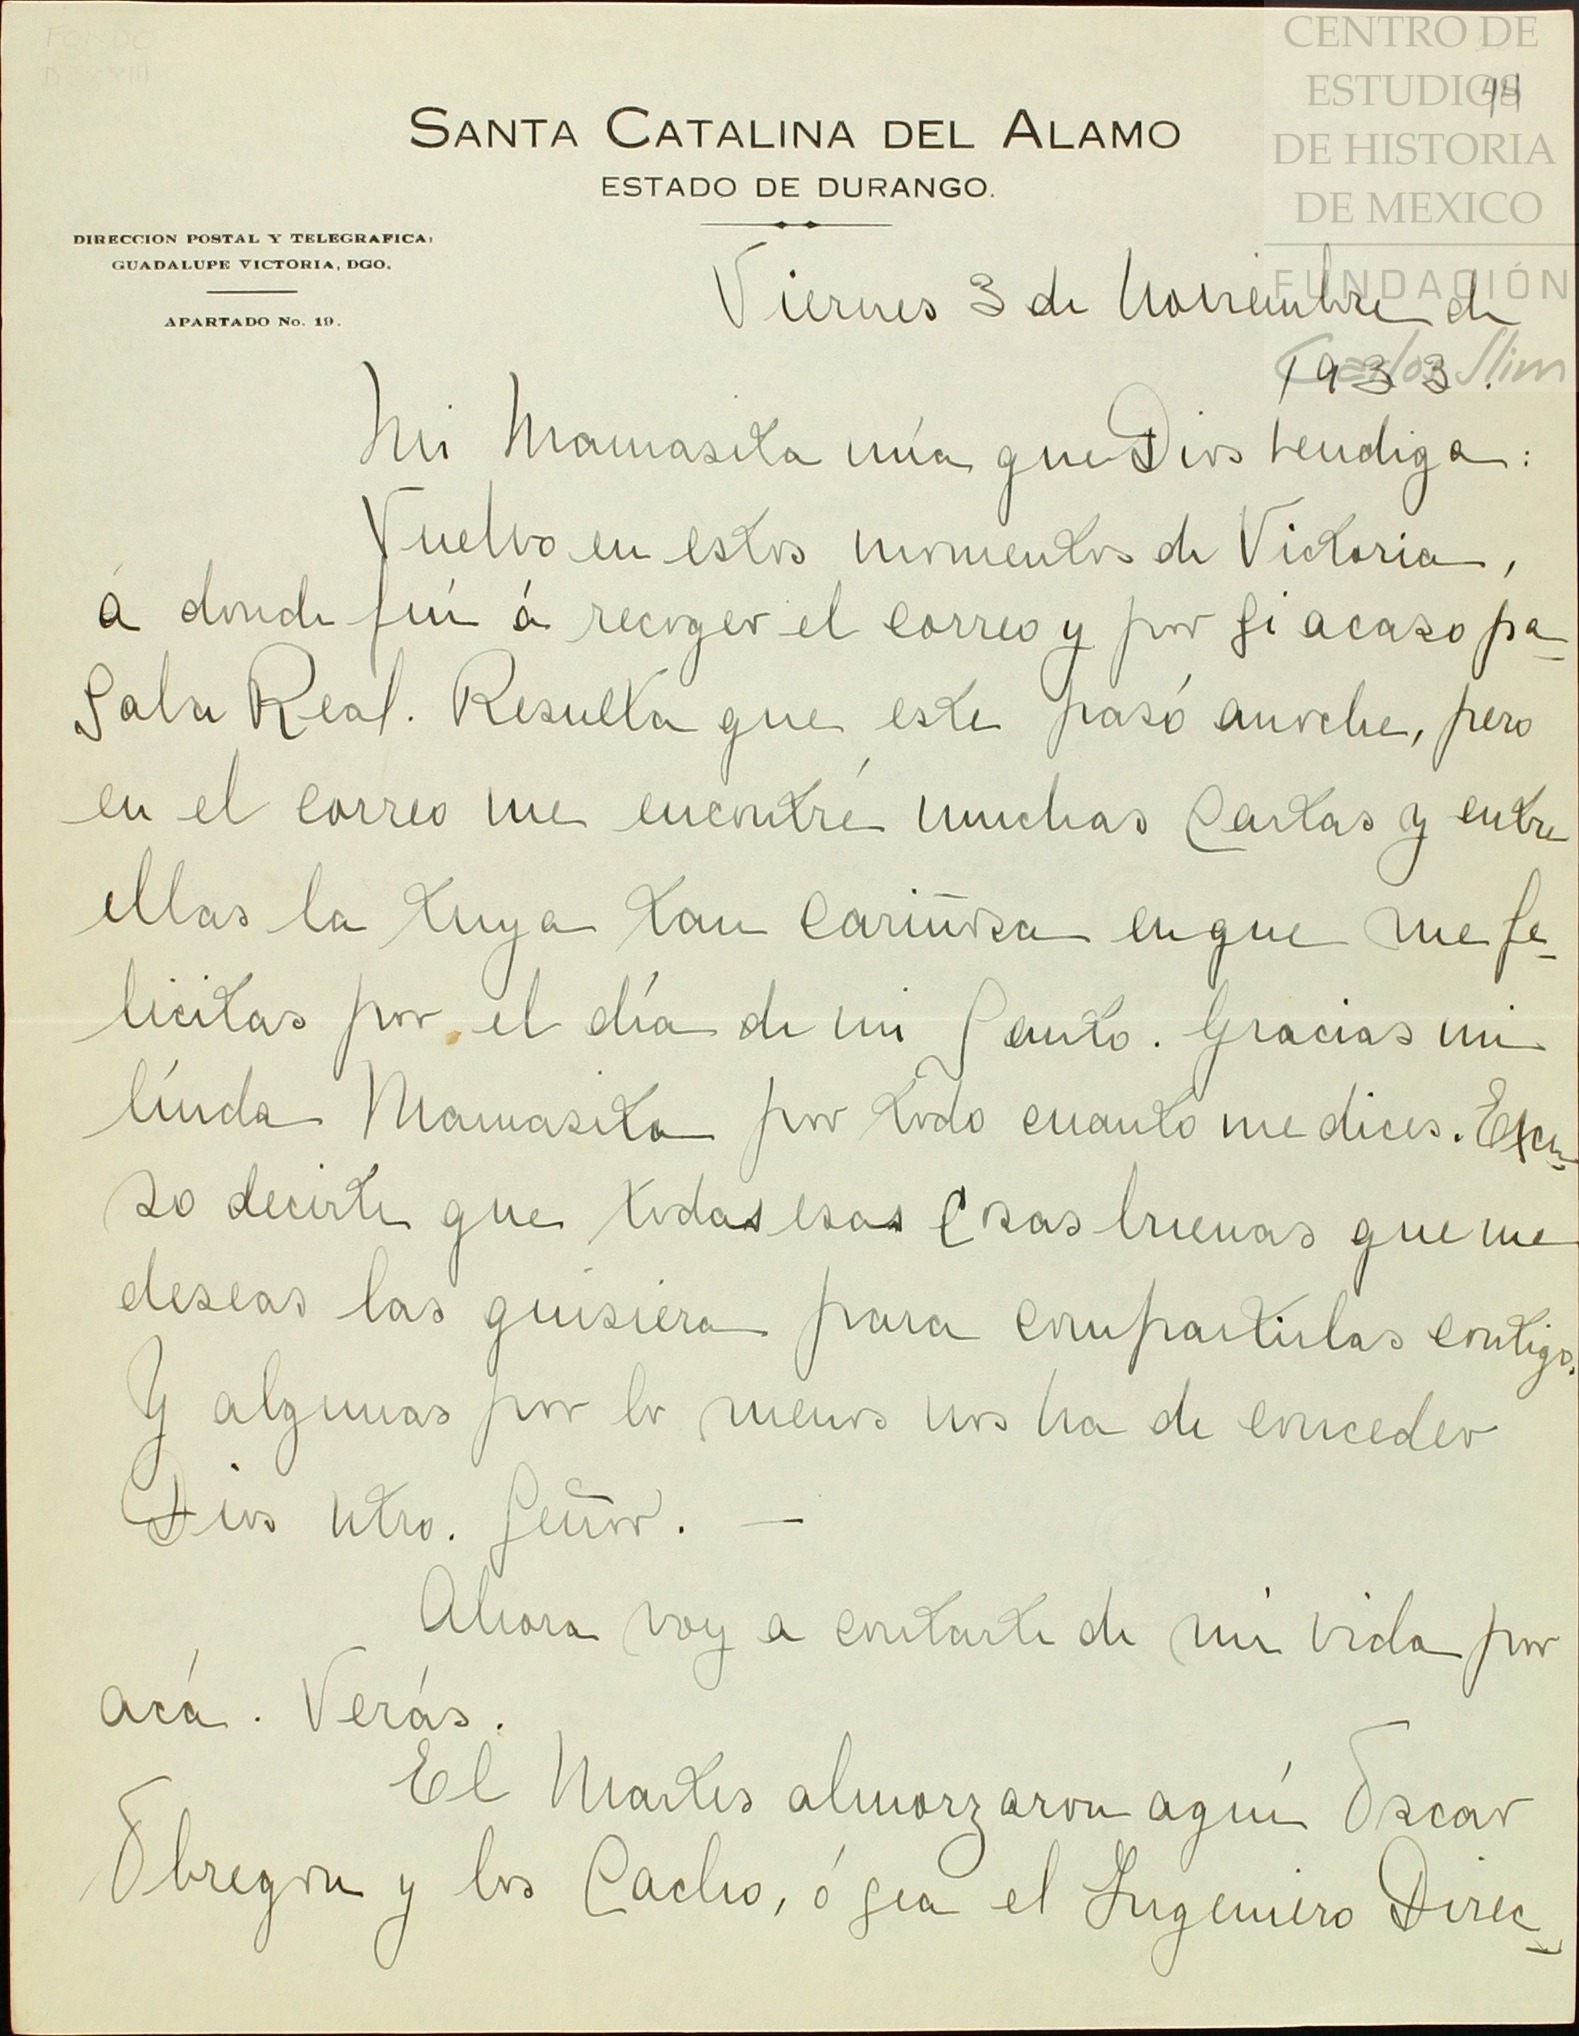 CENTRO DE
ESTUDIOS
DE HISTORIA
DE MEXICO
FUNDACIÓN
Carlos Slim
44
FONDO
D XXIII
SANTA CATALINA DEL ALAMO
ESTADO DE DURANGO.
DIRECCION POSTAL Y TELEGRAFICA:
GUADALUPE VICTORIA, DGO.
APARTADO No. 19.
Viernes 3 de Noviembre de
1933.
Mi Mamasita mía que Dios bendiga:
Vuelvo en estos momentos de Victoria,
á donde fuí á recoger el correo y por si acaso pa-
saba Real. Resulta que este pasó anoche, pero
en el correo me encontré muchas cartas y entre
ellas la tuya tan cariñosa en que me fe-
licitas por el día de mi Santo. Gracias mi
línda Mamasita por todo cuanto me dices. Excu-
so decirte que todas esas cosas buenas que me
deseas las quisiera para compartirlas contigo.
Y algunas por lo menos nos ha de conceder
Dios Ntro. Señor. —
Ahora voy a contarte de mi vida por
acá. Verás.
El Martes almorzaron aquí Oscar
Obregon y los Cacho, ó sea el Ingeniero Direc-